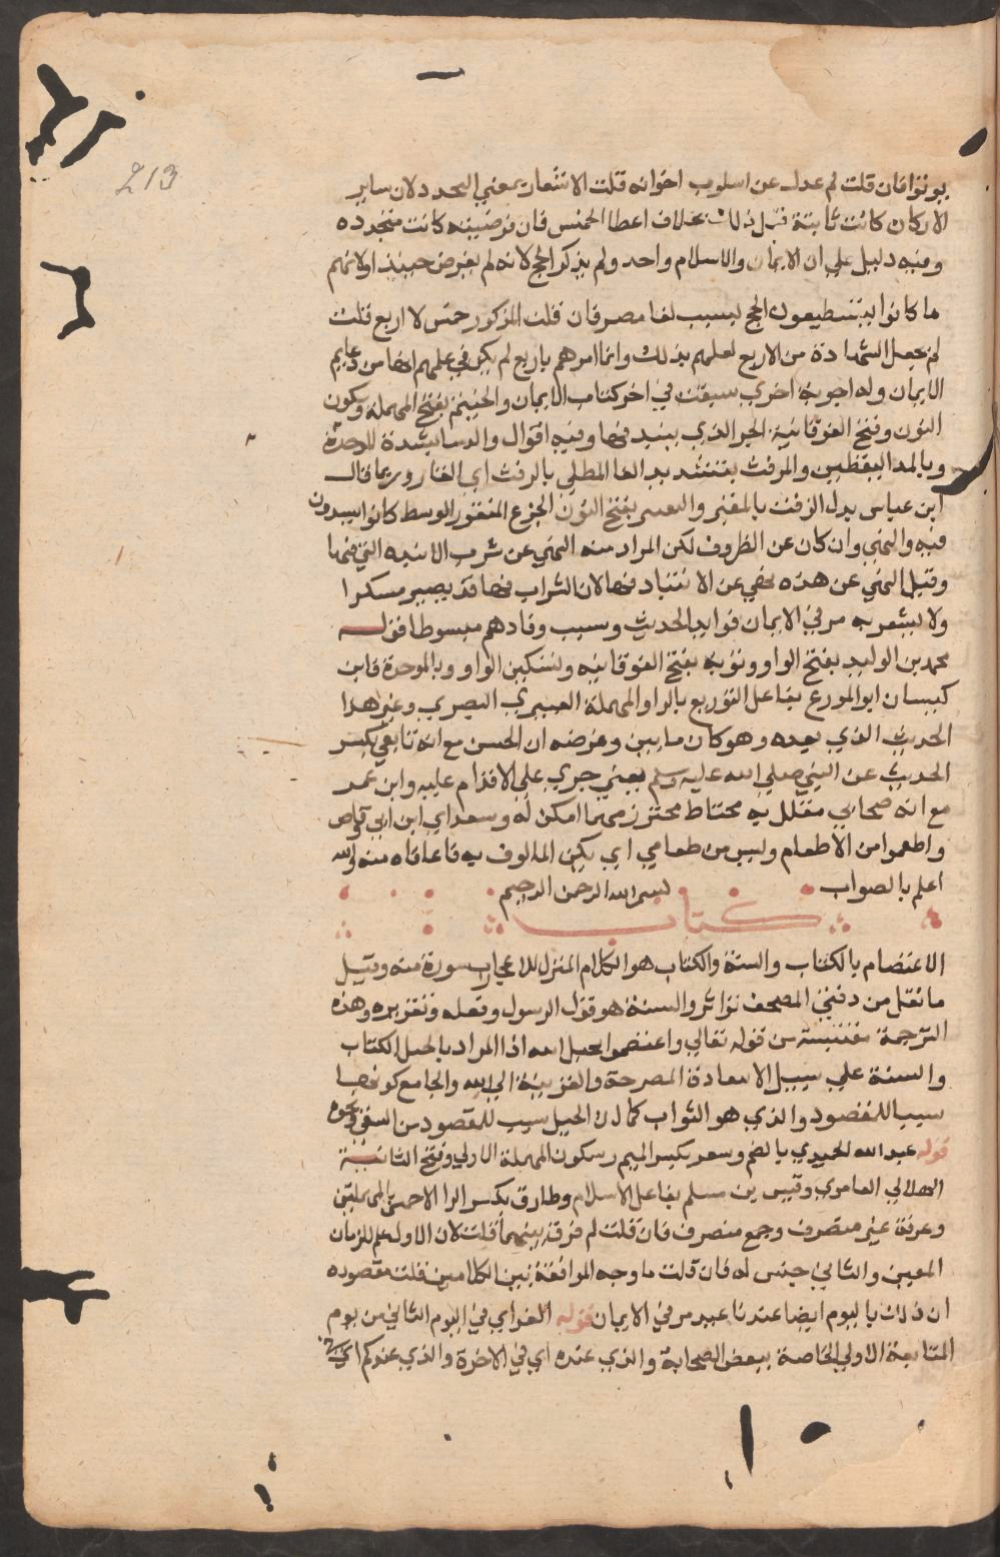 213
يوتوا فان قلت لم عدل عن اسلوب اخواته قلت الاشعار بمعني التجدد لان ساير
الاركان كانت ثابتة قبل ذلك بخلاف اعطا الخمس فان فرضيته كانت متجدده
وفيه دليل علي ان الايمان والاسلام واحد ولم يذكر الحج لانه لم يفرض حينيذ او لانهم
ما كانوا يستطيعون الحج بسبب لقا مضر فان قلت المذكور خمس لا اربع قلت
لم يجعل الشهادة من الاربع لعلمهم بذلك وانما امرهم باربع لم يكن في علمهم انها من دعايم
الايمان وله اجوبة اخري سبقت في اخر كتاب الايمان والحنتم بفتح المهملة وسكون
النون وفتح الفوقانية الجر الذي ينبذ فيها وفيه اقوال والدبا بشدة الموحدة
وبالمد اليقطين والمزفت بتشديد الفا المطلي بالزفت اي القار وربما قال
ابن عباس بدل الزفت بالمقير والنقير بفتح النون الجزع المنقور الوسط كانوا ينبذون
فيه والنهي وان كان عن الظروف لكن المراد منه النهي عن شرب الانبذه التي فيها
وقيل النهي عن هذه يعني عن الانتباذ فيها لان الشراب فيها قد يصير مسكرا
ولا يشعر به مر في الايمان فوايد الحديث وسبب وفادهم مبسوطا قوله
محمد بن الوليد بفتح الواو وتوبة بفتح الفوقانيه وتسكين الواو وبالموحدة وابن
كيسان ابو المورع بفاعل التوريع بالراو المهملة العنبري البصري وغير هذا
الحديث الذي بعده وهو كان ما بين وغرضه ان الحسن مع انه تابعي يكثر
الحديث عن النبي صلي الله عليه وسلم يعني جري علي الاقدام عليه وابن عمر
مع انه صحابي مقلل به محتاط محترز مهما امكن له وسعد اي ابن ابي وقاص
واطعموا من الاطعام وليس من طعامي اي يكن المالوف به فاعافاه منه والله
اعلم بالصواب بسم الله الرحمن الرحيم
كتاب
الاعتصام بالكتاب والسنة والكتاب هو الكلام المنزل للاعجاز بسورة منه وقيل
ما نقل من دفتي المصحف تواترا والسنة هو قول الرسول وفعله وتقريره وهذه
الترجمة مقتبسة من قوله تعالي واعتصموا بحبل الله اذا المراد بالحبل الكتاب
والسنة علي سبيل الاستعادة المصرحة والقرينة الي الله والجامع كونها
سببا للمقصود والذي هو الثواب كما ان الحبل سبب للمقصود من السقي ونحوه
قوله عبد الله الحميدي بالضم ومسعر بكسر الميم وسكون المهملة الاولي وفتح الثانية
الهلالي العامري وقيس بن مسلم بفاعل الاسلام وطارق بكسر الرا الاحمسي بالمهملتين
وعرفة غير متصرف وجمع منصرف فان قلت لم فرق بينهما قلت لان الاول علم للزمان
المعين والثاني جنس له فان قلت ما وجه الموافقة بين الكلامين قلت مقصوده
ان ذلك باليوم ايضا عندنا عيد مر في الايمان قوله الغد اي في اليوم الثاني من يوم
المتابعة الاولي الخاصة ببعض الصحابة والذي عنده اي في الاخرة والذي عندكم اي